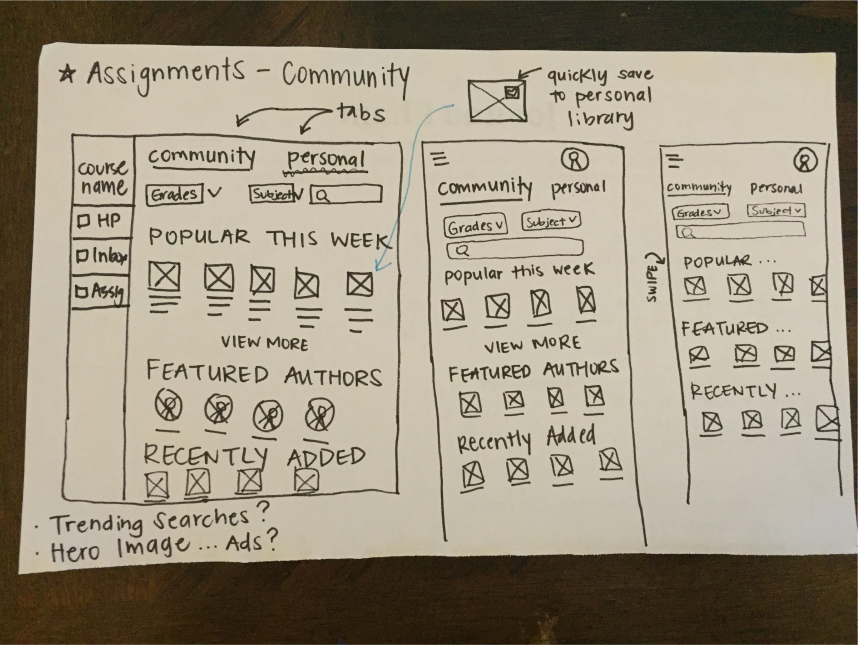 ★ Assignments - Community
tabs
quickly save
to personal
library
course
name
HP
Inbox
Assig
community personal
Grades Subject
POPULAR THIS WEEK
VIEW MORE
FEATURED AUTHORS
RECENTLY ADDED
community personal
Grades Subject
popular this week
VIEW MORE
FEATURED AUTHORS
Recently Added
SWIPE
community Personal
Grades Subject
POPULAR ...
FEATURED ...
RECENTLY ...
· Trending Searches?
· Hero Image ... Ads?